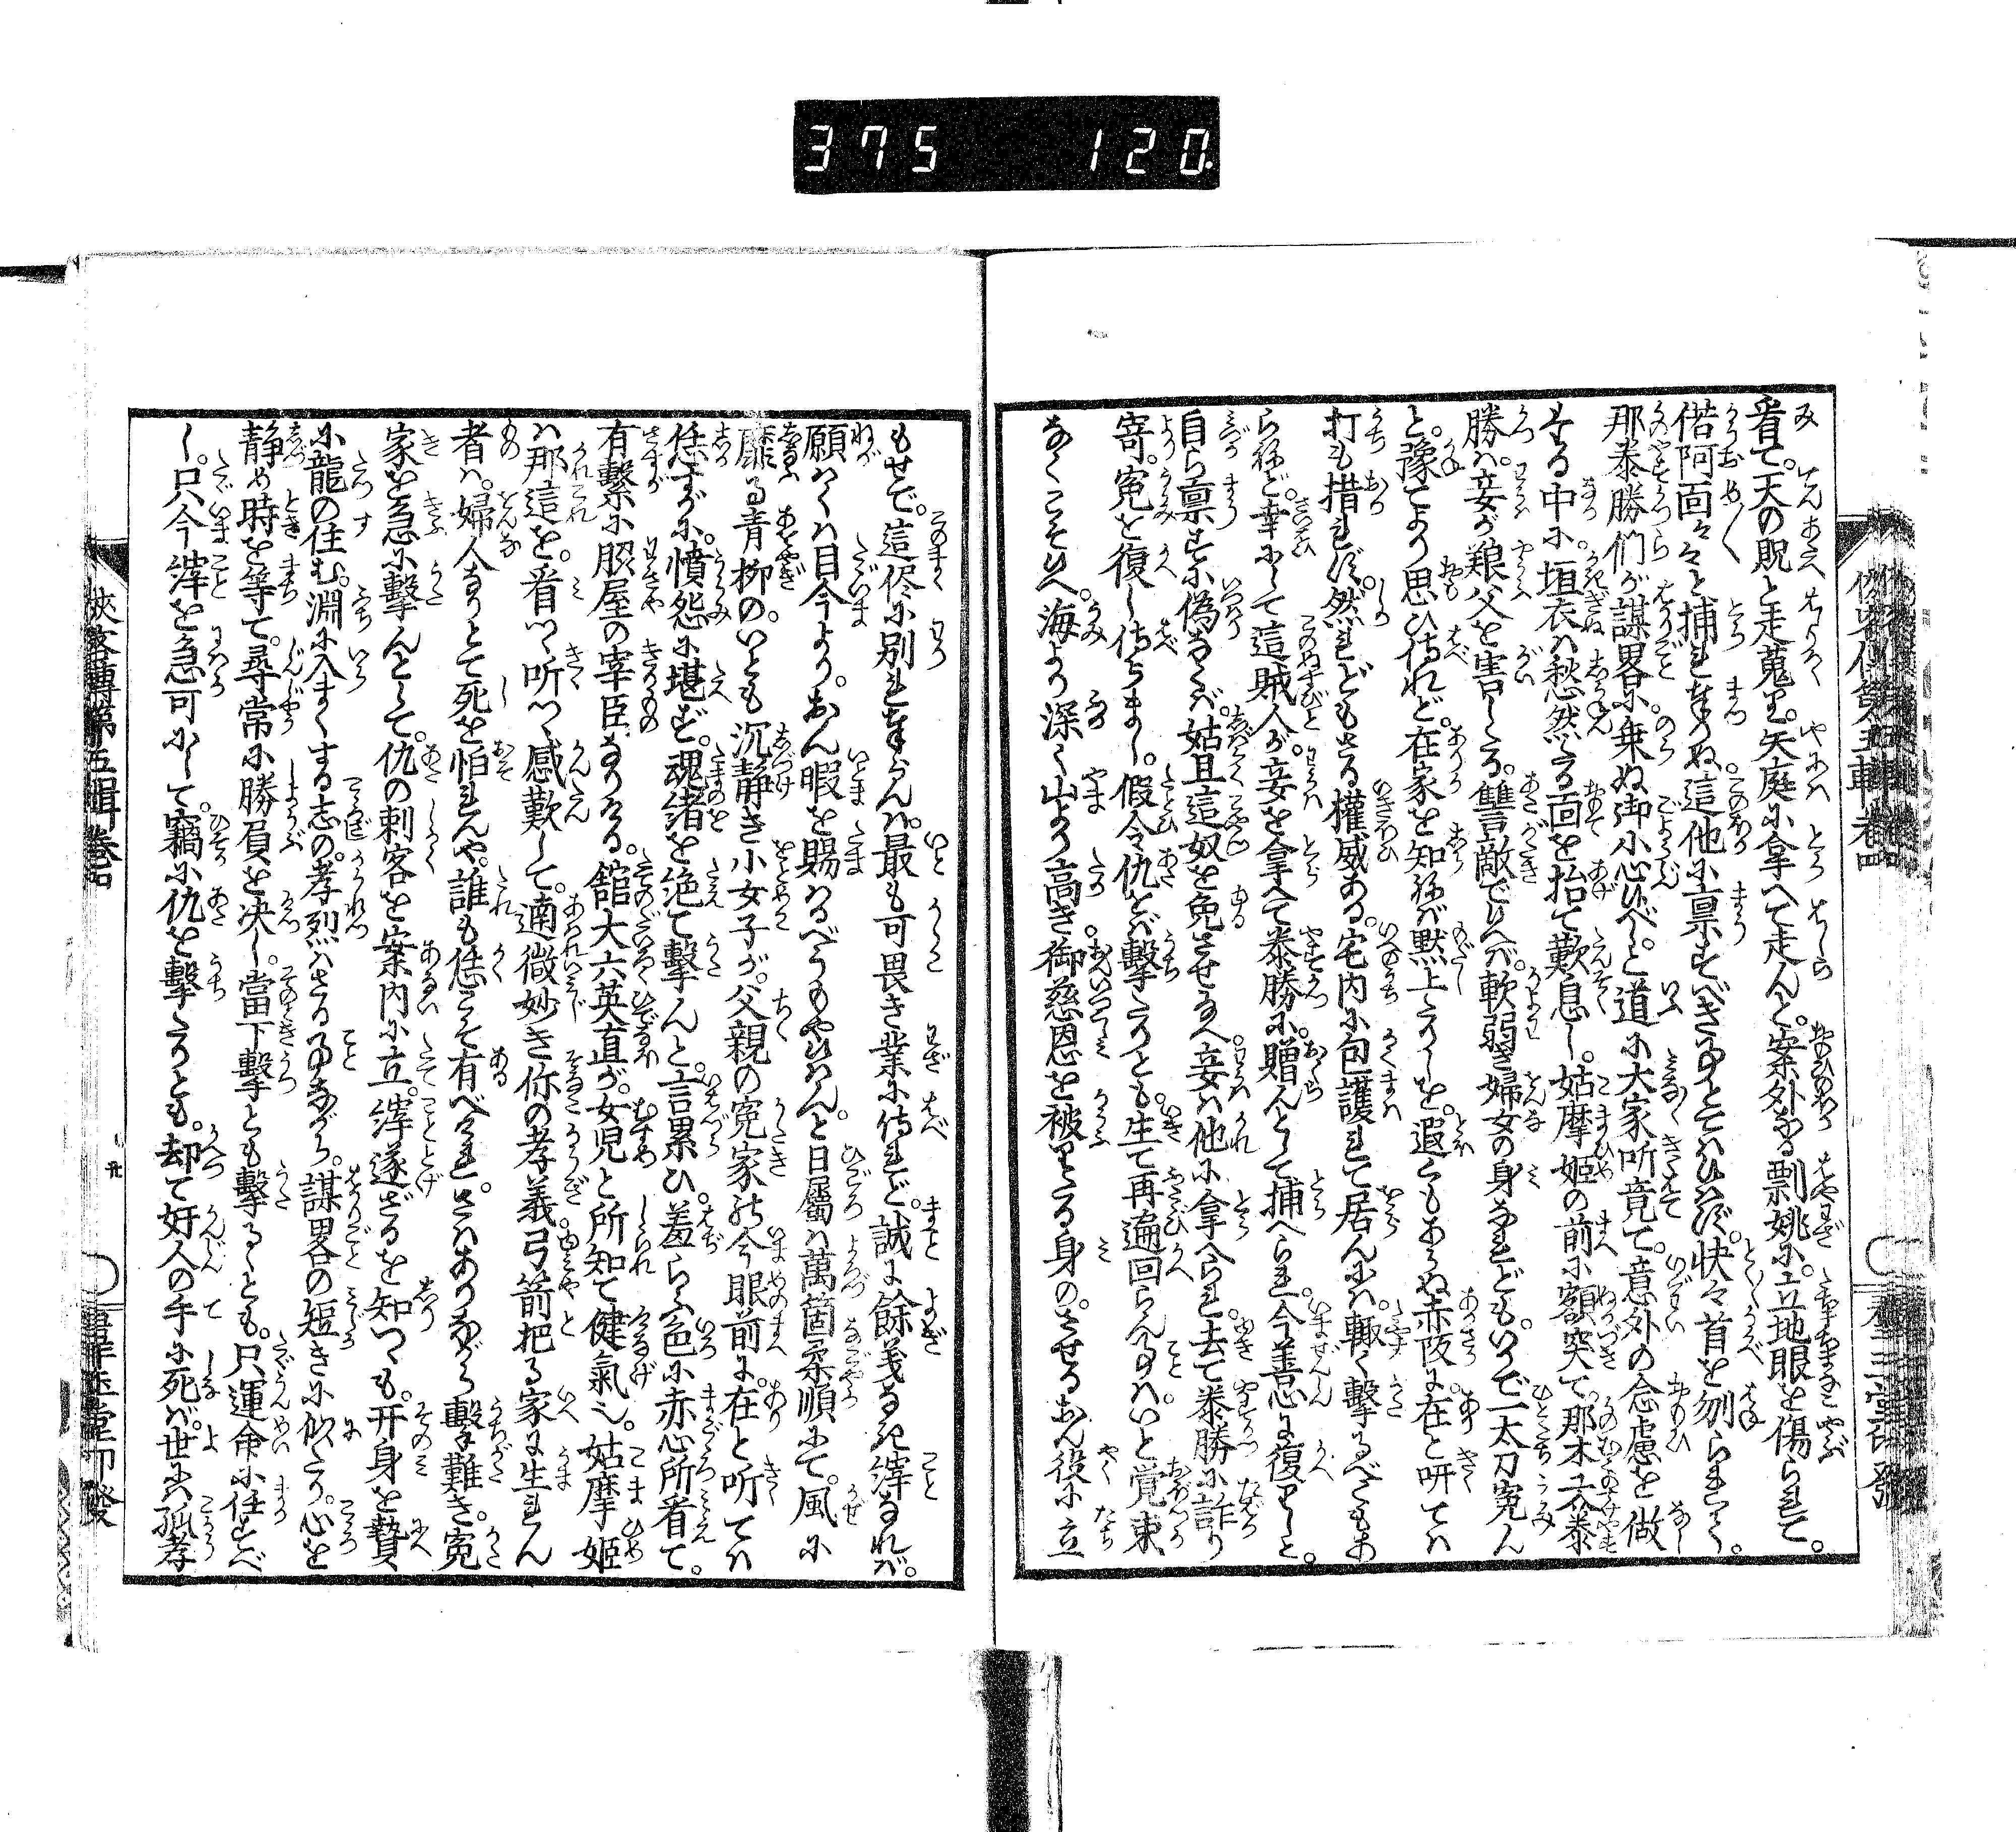 375 120.
看て。天の賜と走蒐り。矢庭に拿へて走んと。案外なる剽姚に。立地眼を傷られて。
偖阿面々々と捕れたりぬ。這他に禀すべき事とてはひはず。快々首を刎られてく。
那泰勝們が謀畧に。乗ぬ御小心ひべしと道に大家听竟て。意外の念慮を做
する中に。垣衣は愁然たる面を抬て歎息し。姑摩姫の前に額突て。那木工泰
勝は。妾が艱父を害したる。讐言敵でひへば。軟弱き婦女の身なれども。いかで一太刀寃ん
と。豫てより思ひ侍れど。在家を知ねば黙止たりしを。遐くもあらぬ赤阪に在と听ては
打も措れず。然れどもさる權威ある。宅内に包護れて居んには。輙く擊るべくもあ
らねど。幸にして這賊人が。妾を拿へて泰勝に。贈んとして捕へられ。今善心に復りしと。
自ら禀すに偽なくば。姑且這奴を免させ給へ。妾は他に拿へられ。去て泰勝に詐り
寄。寃を復し侍らまし。假令仇をば擊たりとも。生て再遍回らん事は。いと覚束
なくこそひへ。海より深く山より高き。御慈恩を被りたる身の。させるおん役に立
もせで。這侭に別れまゐらんは。最も可畏き業に侍れど。誠に餘義なき縡なれば。
願くは目今より。おん暇を賜はるべうもやひはん。と日屬は萬箇柔順にて。風に
靡る青柳の。いとも沉靜き小女子が。父親の寃家の今眼前に。在と听ては
恁すがに。憤怨に堪ず。魂緒を絶て擊んと。言累ひ。羞らふ色に赤心所看て。
有繋に服屋の宰臣なりける。舘大六英直が。女児と所知て健氣也。姑摩姫
は那這を。看つ听つ感歎して。遖微妙き你の孝義。弓箭把る家に生れん
者は。婦人なりとて死を怕れんや。誰も恁こそ有べけれ。さはありながら擊難き。寃
家を急に擊んとして。仇の刺客を案內に立。縡遂ざるを知つゝも。开身を贄
に龍の住む。淵に入まくする志の。孝烈はさる事ながら。謀畧の短きに似たり。心を
静め時を等て。尋常に勝負を决し。當下擊とも擊るゝとも。只運命に任すべ
し。只今縡を急可にして。竊に仇を擊たりとも。却て奸人の手に死ば。世に只孤孝
俠客傳第五輯 巻四